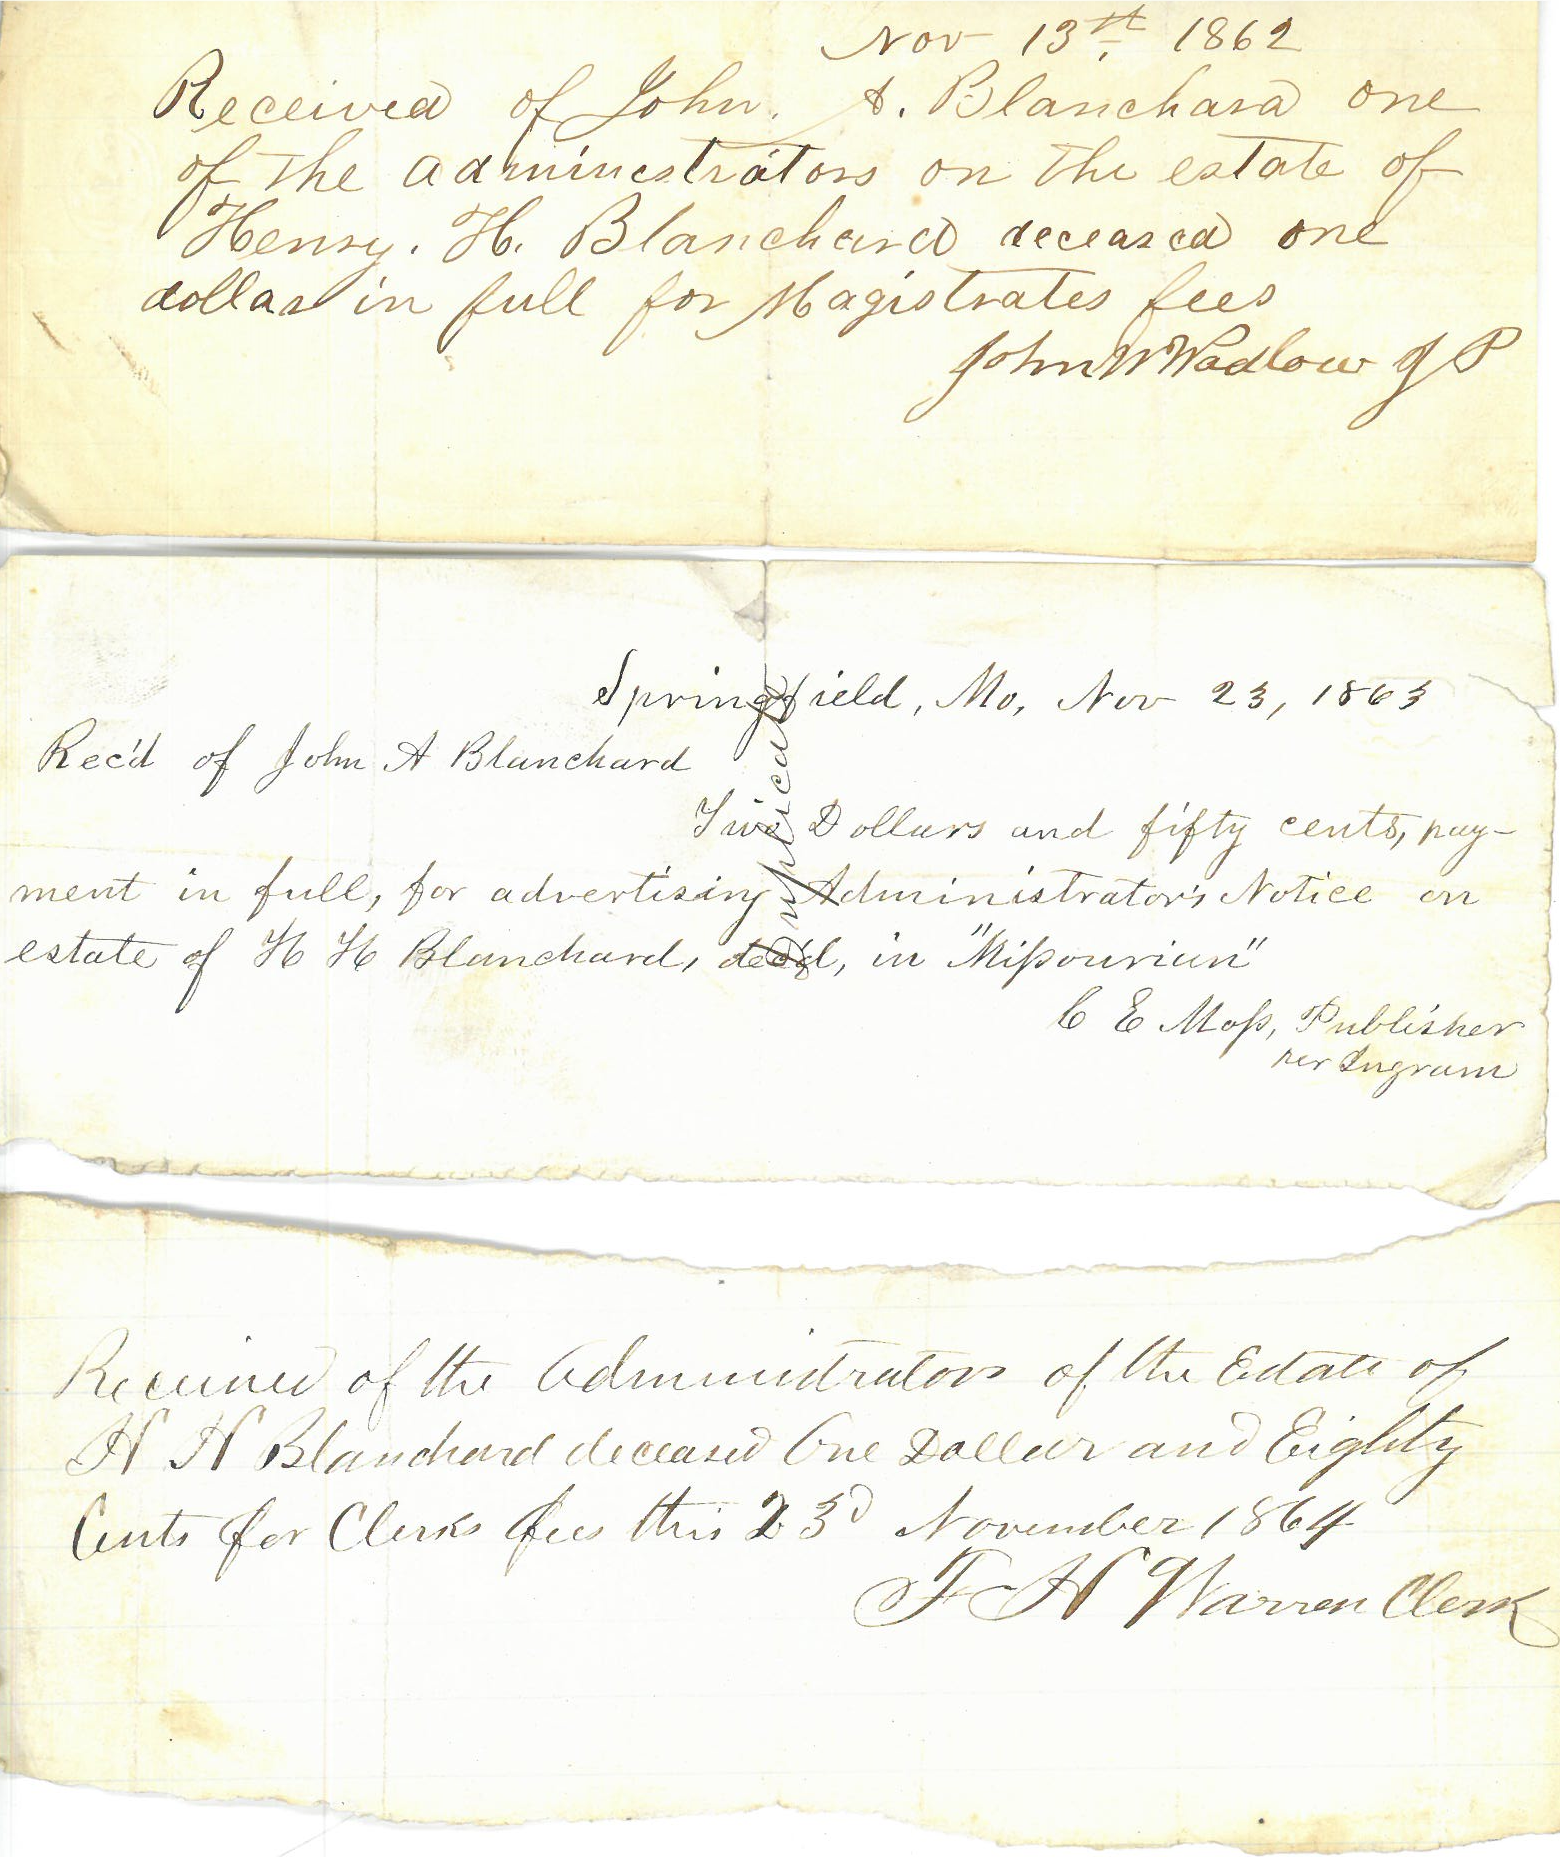 Nov 13st 1862
Received of John. A. Blanchard one
of the administrators on the estate of
Henry. H. Blanchard deceased one
dollar in full for Magistrates fees
John W Wadlow J P
Springfield, Mo, Nov 23, 1863
Rec'd of John A Blanchard
Two Dollars and fifty cents, pay-
ment in full, for advertising Administrator's Notice on
estate of H H Blanchard, dec'd, in "Missourian"
C E Moss, Publisher
per Ingram
Duplicate
Received of the Administrators of the Estate of
H H Blanchard deceased One Dollar and Eighty
Cents for Clerks fees this 23d November 1864
F H Warren Clerk